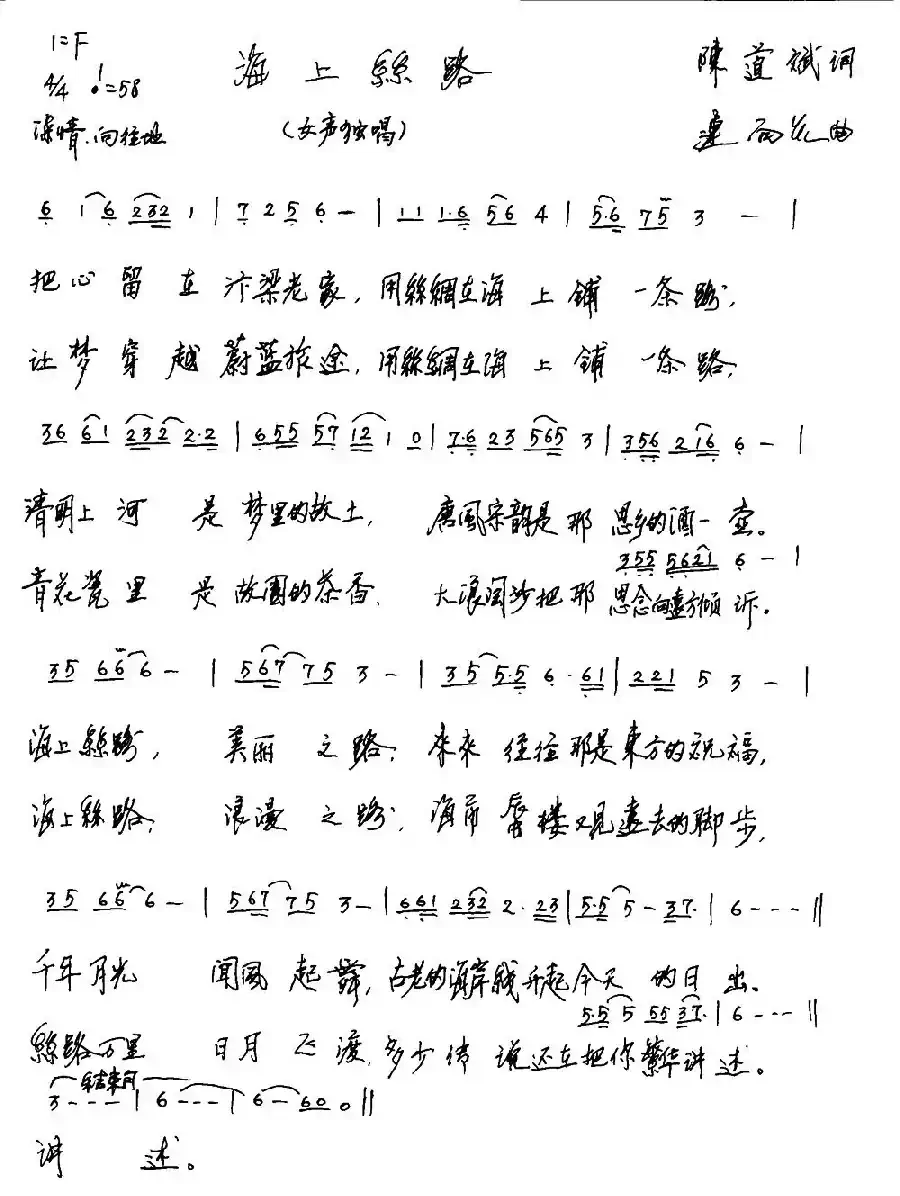 1=F
4/4 ♩=58 海上絲路 陳道斌词
深情、向往地 (女声独唱) 连向先曲
6 16 232 1 | 7 2 5 6 - | 11 1·6 56 4 | 5·6 75 3 - |
把心留在汴梁老家,用絲綢在海上铺一条路,
让梦穿越蔚蓝旅途,用絲綢在海上铺一条路,
36 61 232 2·2 | 655 57 12 1 0 | 7·6 23 565 3 | 356 216 6 - |
清明上河是梦里的故土, 唐風宋韵是那思乡的酒一壶。
355 5621 6 - |
青花瓷里是故園的茶香, 大浪淘沙把那思念向遠方倾诉。
35 66 6 - | 567 75 3 - | 35 5·5 6·61 | 221 5 3 - |
海上絲路, 美丽之路, 来来往往那是東方的祝福,
海上絲路, 浪漫之路, 海市蜃楼又見遠去的脚步,
35 66 6 - | 567 75 3 - | 661 232 2·23 | 5·5 5 - 37· | 6 - - - ||
千年月光 闻風起舞,古老的海岸线升起今天的日出。
5·5 5 55 37· | 6 - - - ||
絲路万里 日月飞渡,多少传说还在把你繁华讲述。
结束句
3 - - - | 6 - - - | 6 - 60 0 ||
讲 述。